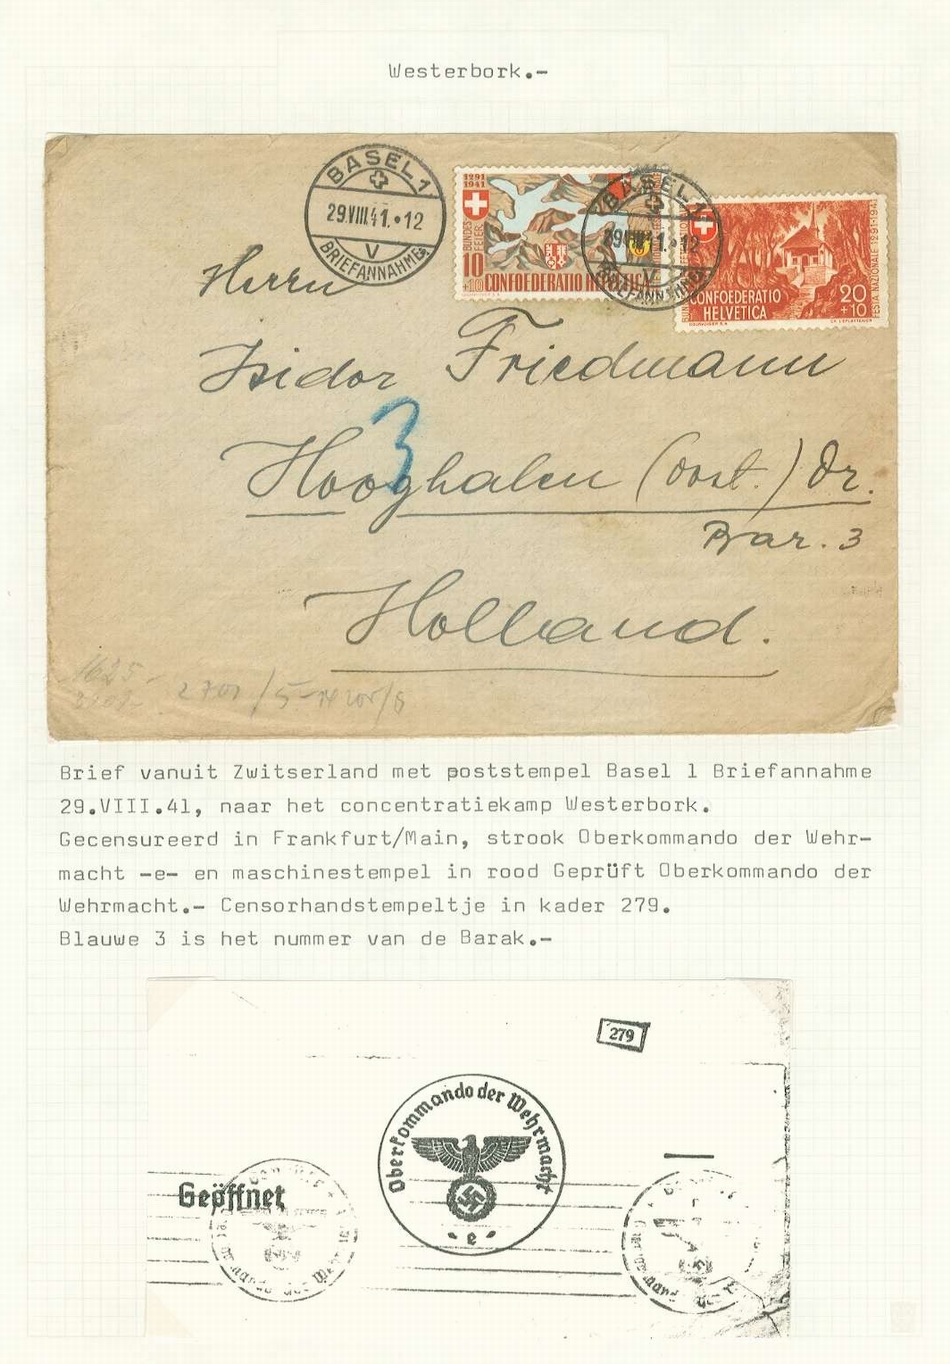 Westerbork.-
BASEL 1
29.VIII.41.•12
V
BRIEFANNAHME
1291
1941
BUNDES
FEIER
10
+10
CONFOEDERATIO HELVETICA
BASEL 1
29.VIII.41.•12
V
BRIEFANNAHME
CONFOEDERATIO
HELVETICA
20
+10
FESTA NAZIONALE 1291-1941
Herrn
Isidor Friedmann
3
Hooghalen (Oost.) Dr.
Bar. 3
Holland.
1625-
2701/5-
Brief vanuit Zwitserland met poststempel Basel 1 Briefannahme
29.VIII.41, naar het concentratiekamp Westerbork.
Gecensureerd in Frankfurt/Main, strook Oberkommando der Wehr-
macht -e- en maschinestempel in rood Geprüft Oberkommando der
Wehrmacht.- Censorhandstempeltje in kader 279.
Blauwe 3 is het nummer van de Barak.-
279
Oberkommando der Wehrmacht
- e -
Geöffnet